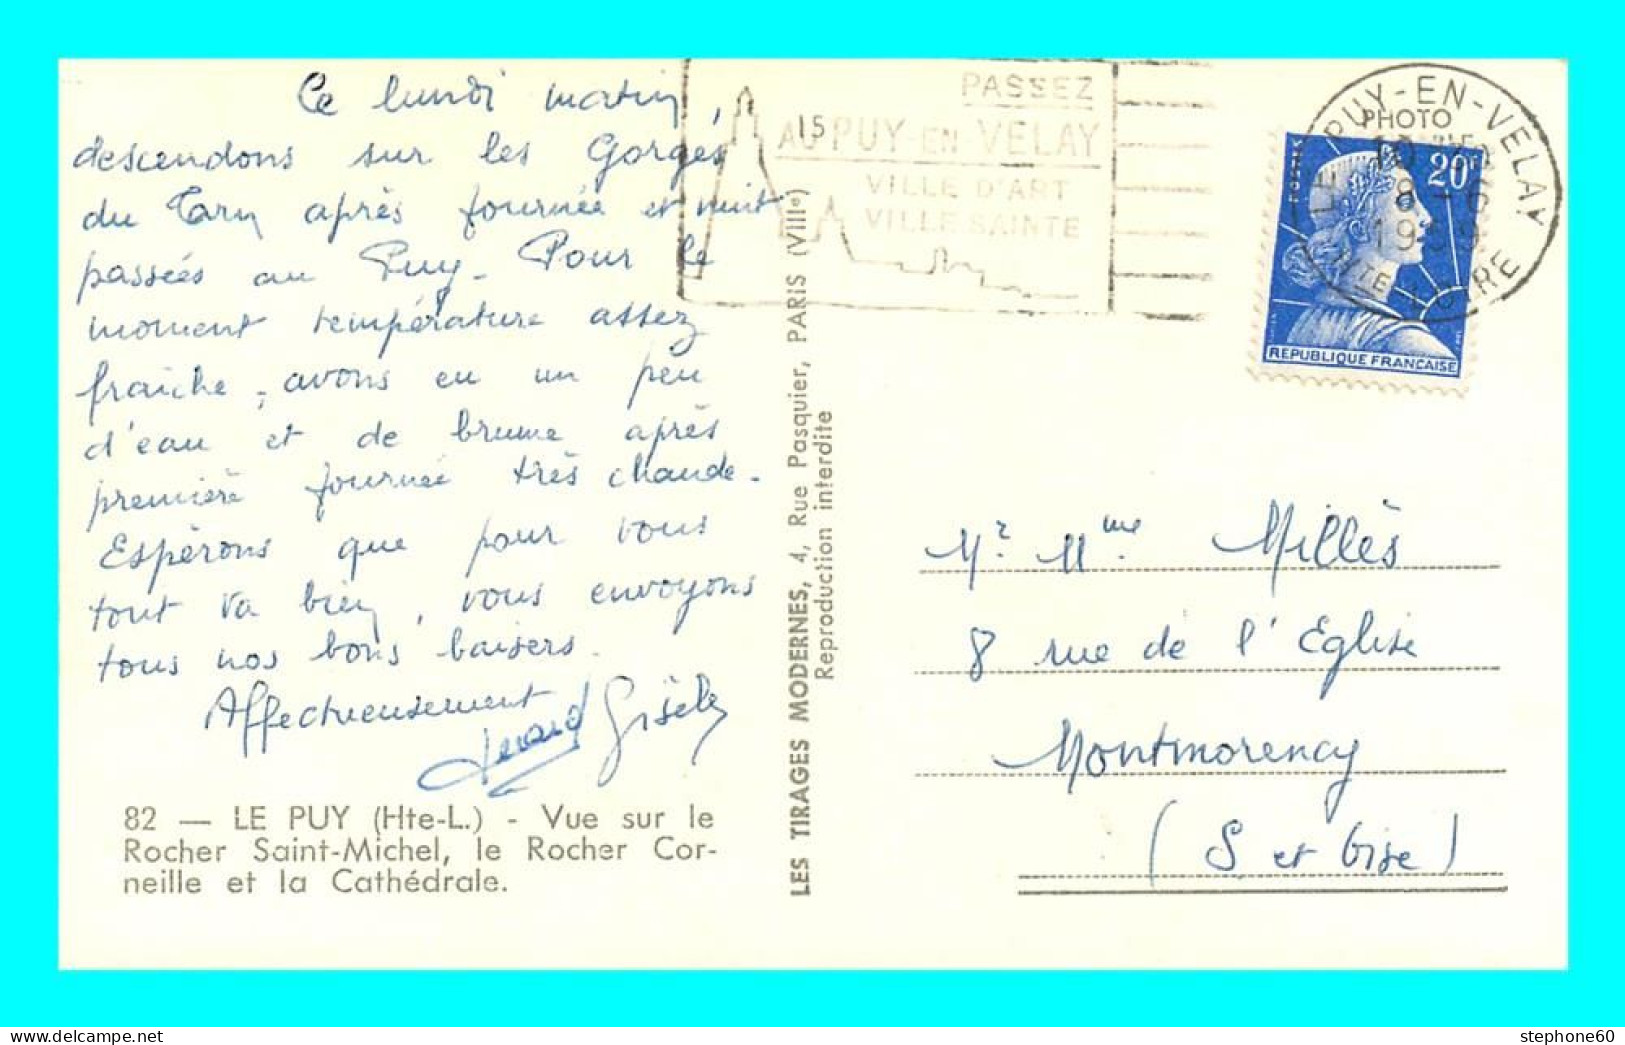 Ce lundi matin,
descendons sur les Gorges
du Tarn après journée et nuit
passées au Puy. Pour le
moment température assez
fraîche, avons eu un peu
d'eau et de brume après
première journée très chaude.
Espérons que pour vous
tout va bien, vous envoyons
tous nos bons baisers.
Affectueusement
Gérard Gisèle
82 — LE PUY (Hte-L.) - Vue sur le
Rocher Saint-Michel, le Rocher Cor-
neille et la Cathédrale.
LES TIRAGES MODERNES, 4, Rue Pasquier, PARIS (VIIIe)
Reproduction interdite
PASSEZ
AU PUY-EN-VELAY
VILLE D'ART
VILLE SAINTE
15
LE PUY-EN-VELAY
PHOTO
8 - 6
1959
HTE LOIRE
POSTES
20F
REPUBLIQUE FRANCAISE
Mr Mme Millès
8 rue de l'Eglise
Montmorency
(S. et Oise)
stephone60